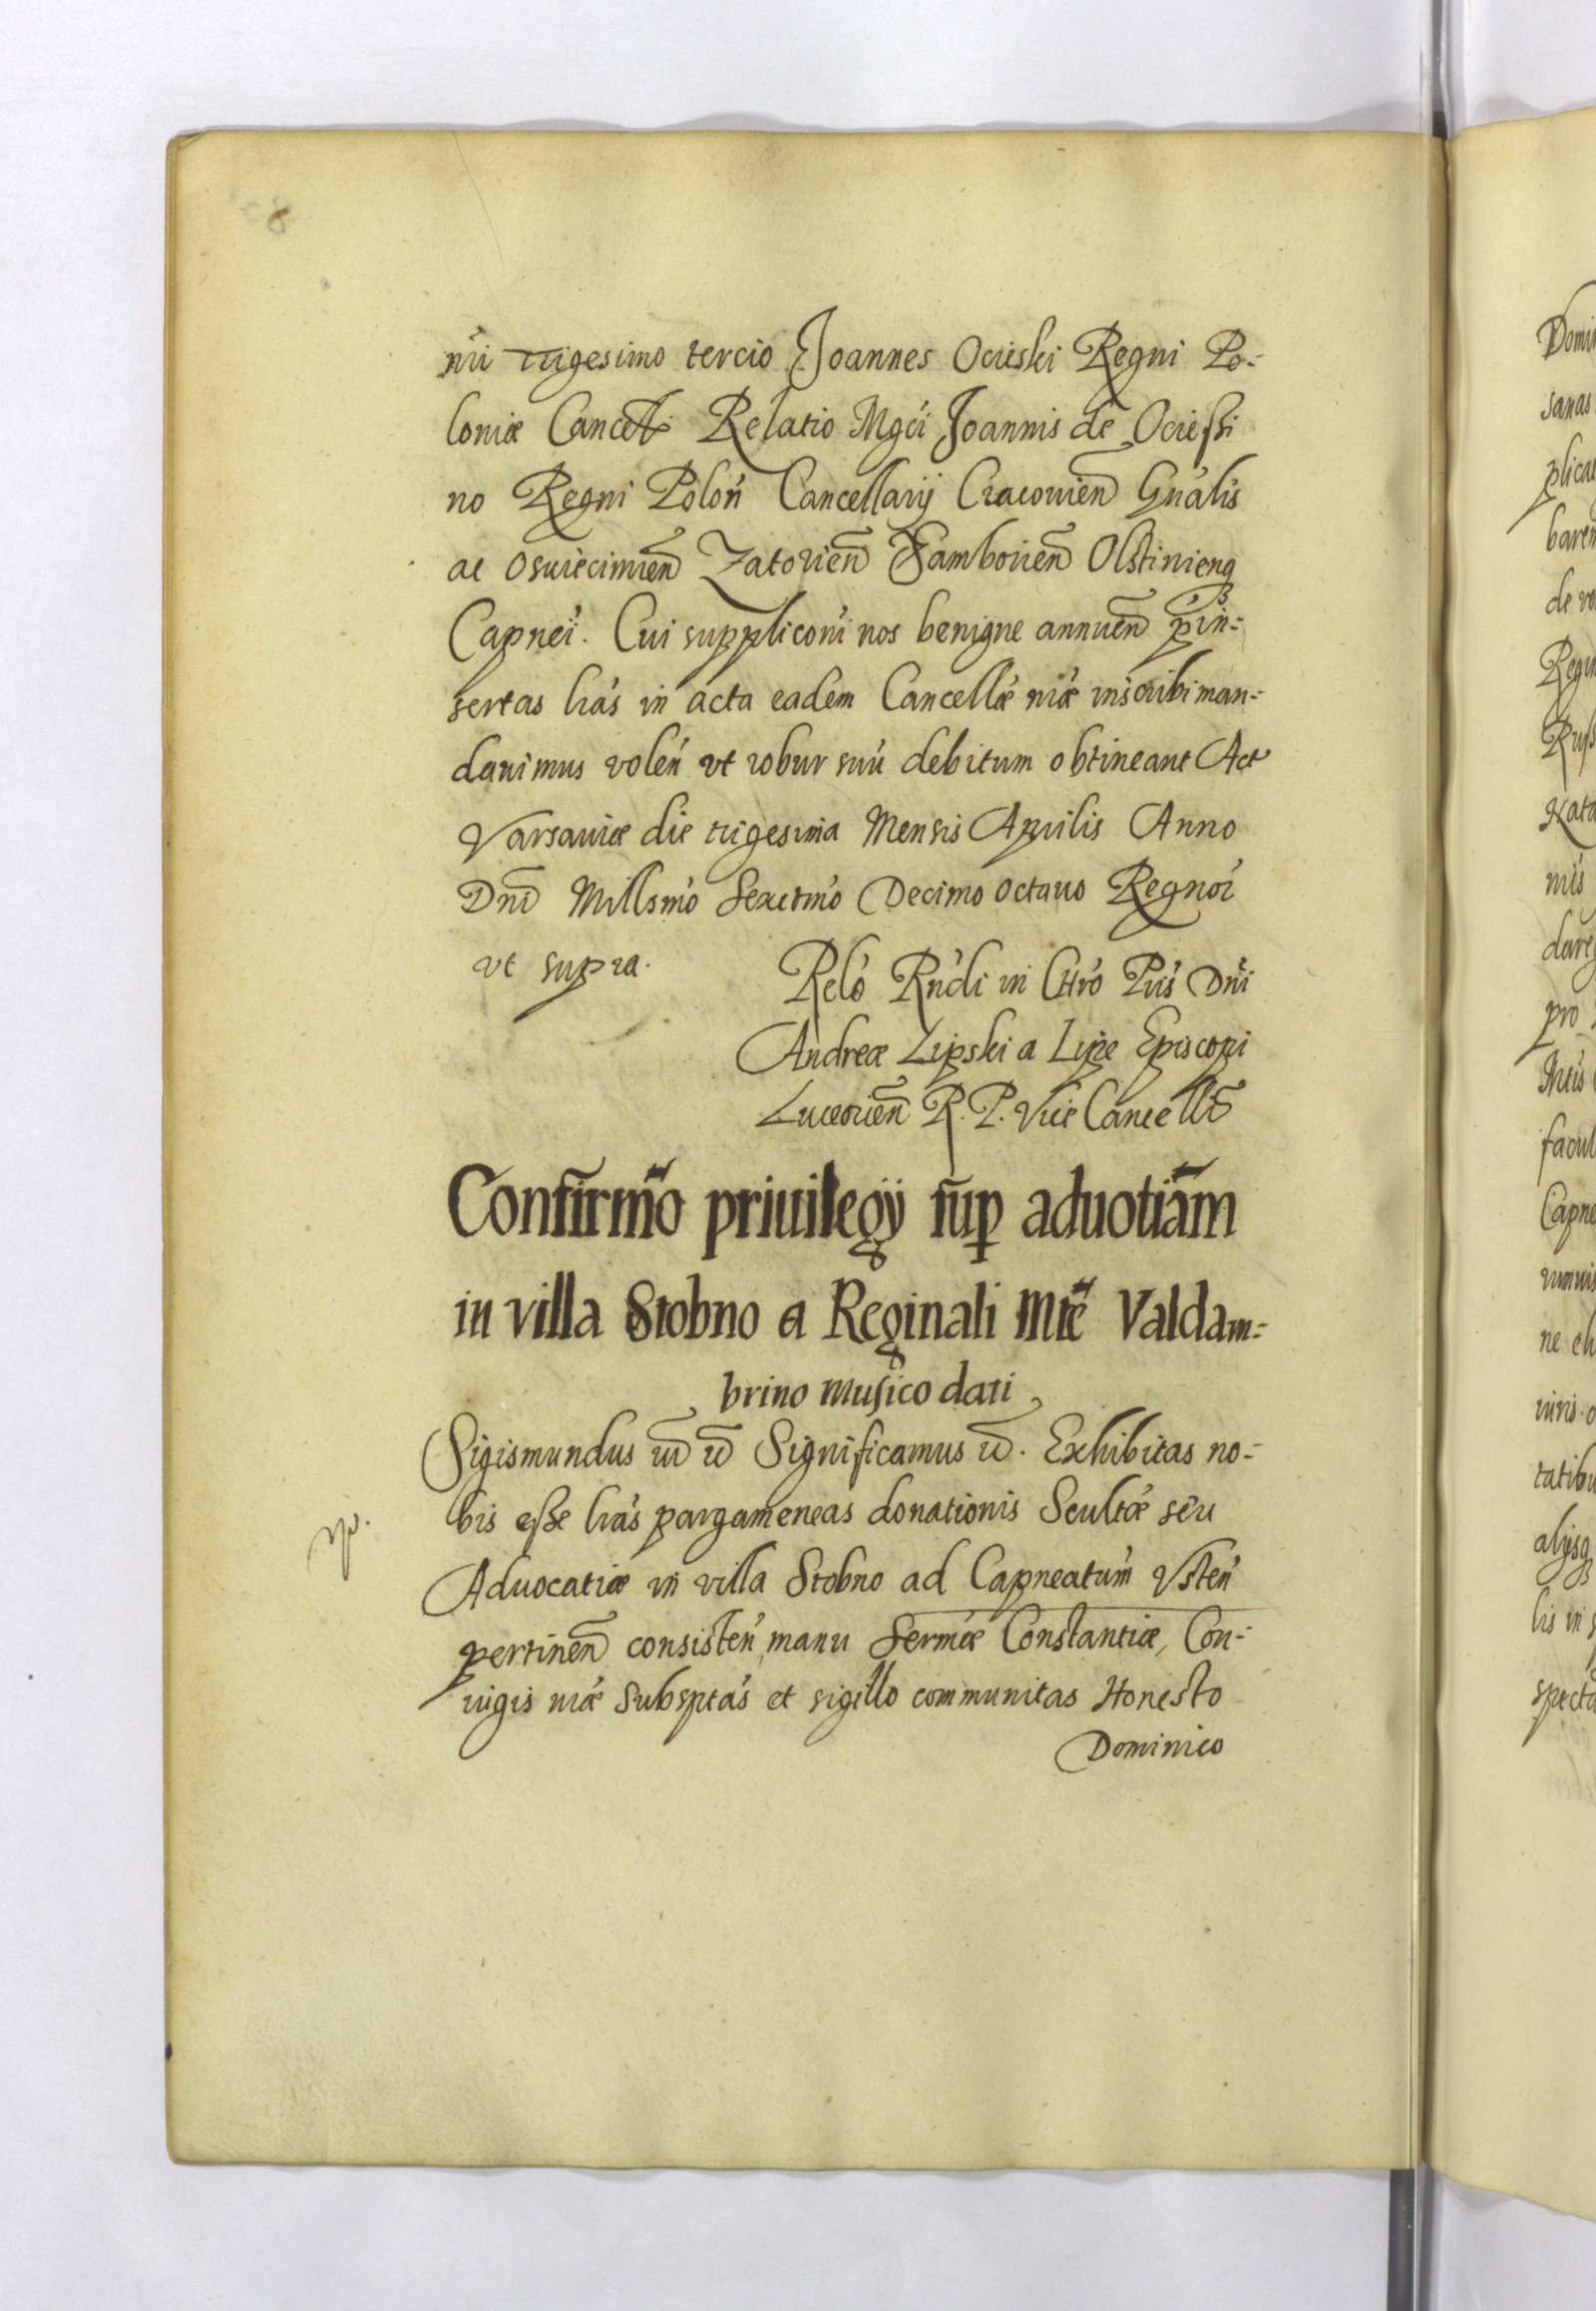 nri trigesimo tercio Joannes Ocieski Regni Po-
loniæ Cancell Relatio Mgci Joannis de Ociessi
no Regni Polon Cancellarij Cracouien Gnalis
ac Osuiecimien Zatorien Samborien Olstinienq
Capnei. Cui suppliconi nos benigne annuen pin-
sertas lras in acta eadem Cancellæ nræ inscribi man-
dauimus volen vt robur suu debitum obtineant Act
Varsauiæ die trigesima Mensis Aprilis Anno
Dni Millsmo Sexctmo Decimo octauo Regnor
vt supra.
Relo Rndi in Chro Pris Dni
Andreæ Lipski a Lipe Episcopi
Luceorien R. P. Vice Cancell
Confirmo priuilegij sup aduotiam
in villa Stobno a Reginali Mte Valdam-
brino Musico dati
Sigismundus Significamus Exhibitas no-
bis esse lras pargameneas donationis Scultæ seu
Aduocatiæ in villa Stobno ad Capneatum Vsten
pertinen consisten, manu Sermæ Constantiæ, Con-
iugis nræ Subsptas et sigillo communitas Honesto
Dominico